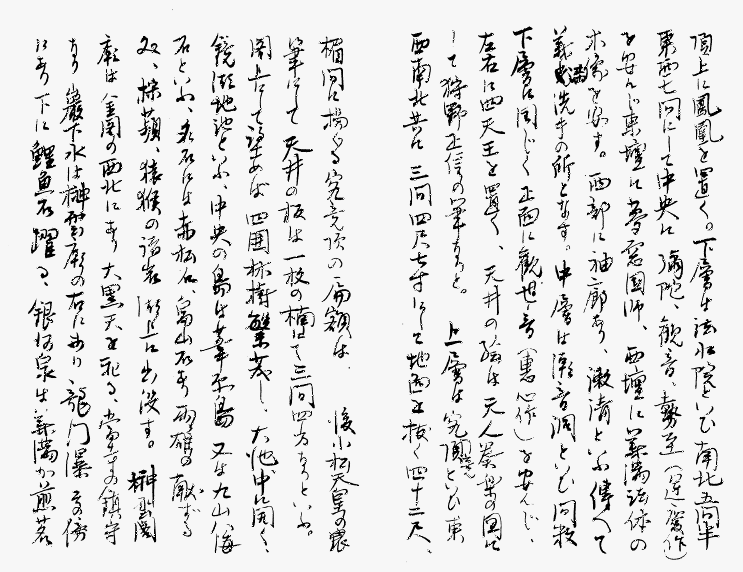 頂上に鳳凰を置く。下層は法水院といひ南北五間半
東西七間にして中央に彌陀、観音、勢至(運慶作)
を安んじ東壇に夢窓國師、西壇に義満法体の
木像を安す。西部に釣廊あり、漱清といふ傳へて
義満洗手の所となす。中層は潮音洞といひ間数
下層に同じく正面に觀世音(惠心作)を安んじ、
左右に四天王を置く、天井の絵は天人奏楽の図に
して狩野正信の筆なりと。上層は究竟頂といひ東
西南北共に三間四尺七寸にして地面を抜く四十二尺、
楣間に揚ぐる究竟頂の扁額は、後小松天皇の宸
筆にして天井の板は一枚の楠にて三間四方なりといふ。
閣上にして望めば四囲林樹繁茂し、大池中に開く、
鏡湖池といふ、中央の島は葦原島又は九山八海
石といふ、名石には赤松石畠山石等 献ずる
双、採蘋、猿猴の諸岩湖上に出没す。榊雲閣
廟は金閣の西北にあり大黒天を祀る、當寺の鎮守
なり巖下水は榊雲廟の右にあり、龍門瀑その傍
にあり下に鯉魚石躍る、銀河泉は義満が煎茗